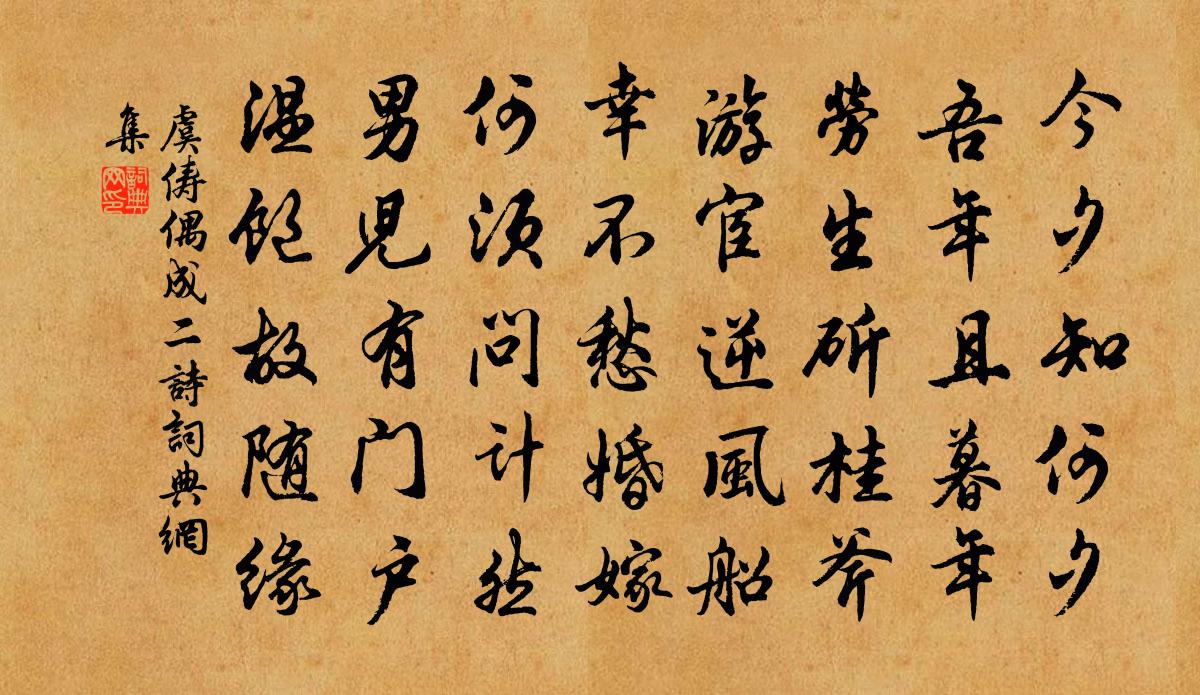 今夕知何夕
吾年且暮年
勞生斫桂斧
游宦逆風船
幸不愁婚嫁
何须問计然
男児有门户
温飽故随缘
虞俦偶成二詩詞典網
集
詞典
网印